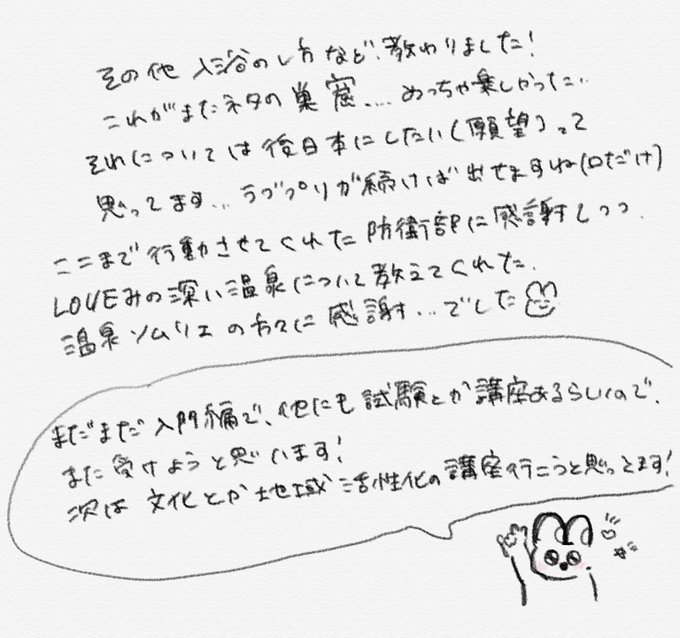 その他 入浴のし方など、教わりました!
これがまたネタの巣窟.... めっちゃ楽しかった..
それについては後日本にしたい(願望)って
思ってます... ラブプリが続けば出せますね(口だけ)
ここまで行動させてくれた防衛部に感謝しつつ.
LOVEみの深い温泉について教えてくれた.
温泉ソムリエの方々に感謝...でした
まだまだ入門編で、他にも試験とか講座あるらしいので、
また受けようと思います!
次は文化とか地域活性化の講座行こうと思ってます!